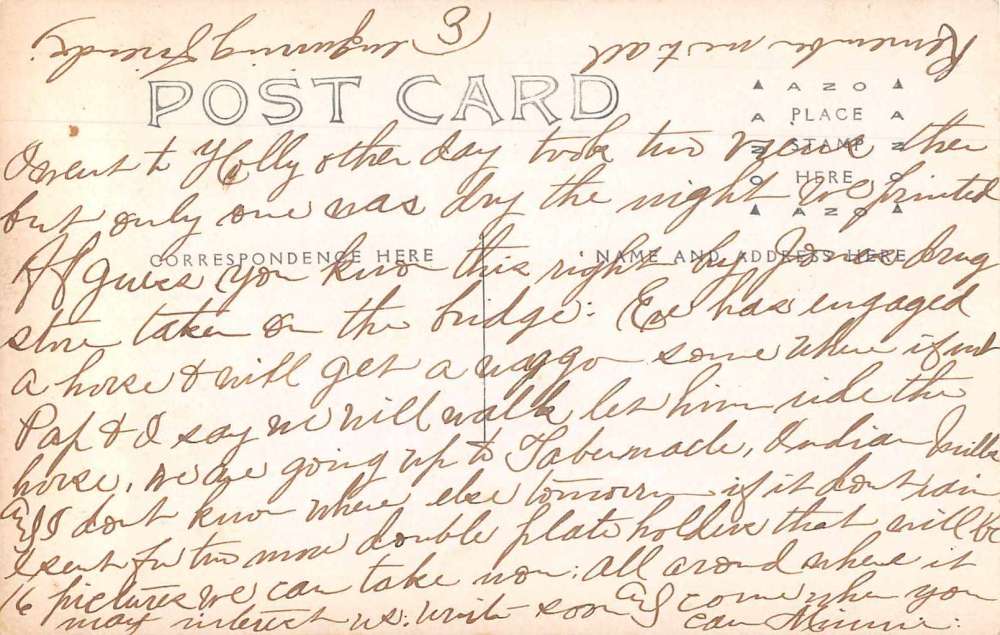 Remember me to all
inquiring friends.
3
POST CARD
AZO
PLACE
STAMP
HERE
AZO
CORRESPONDENCE HERE
NAME AND ADDRESS HERE
I went to Holly other day took two views then
but only one was dry the night we printed
I guess you know this right by Jones drug
store taken on the bridge: Ere has engaged
a horse & will get a waggon some where if not
Pap & I say we will walk let him ride the
horse, we are going up to Tabernacle, Indian Mills
and I dont know where else tomorrow if it dont rain
I sent for two more double plate holders that will be
16 pictures we can take now: all around where it
may interest us: write soon and come when you
can Minnie: